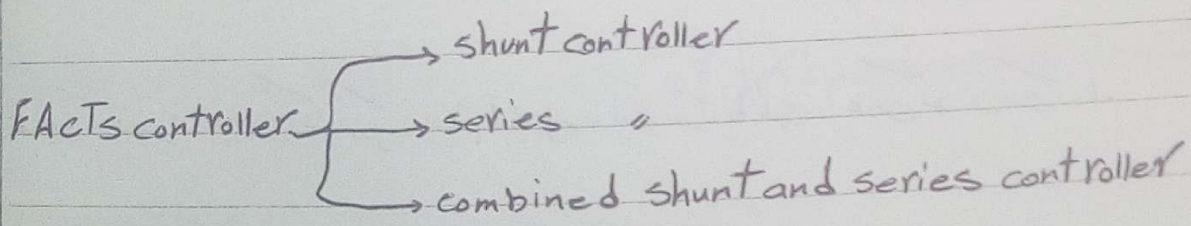 shunt controller
FACTs controller
series "
combined shunt and series controller